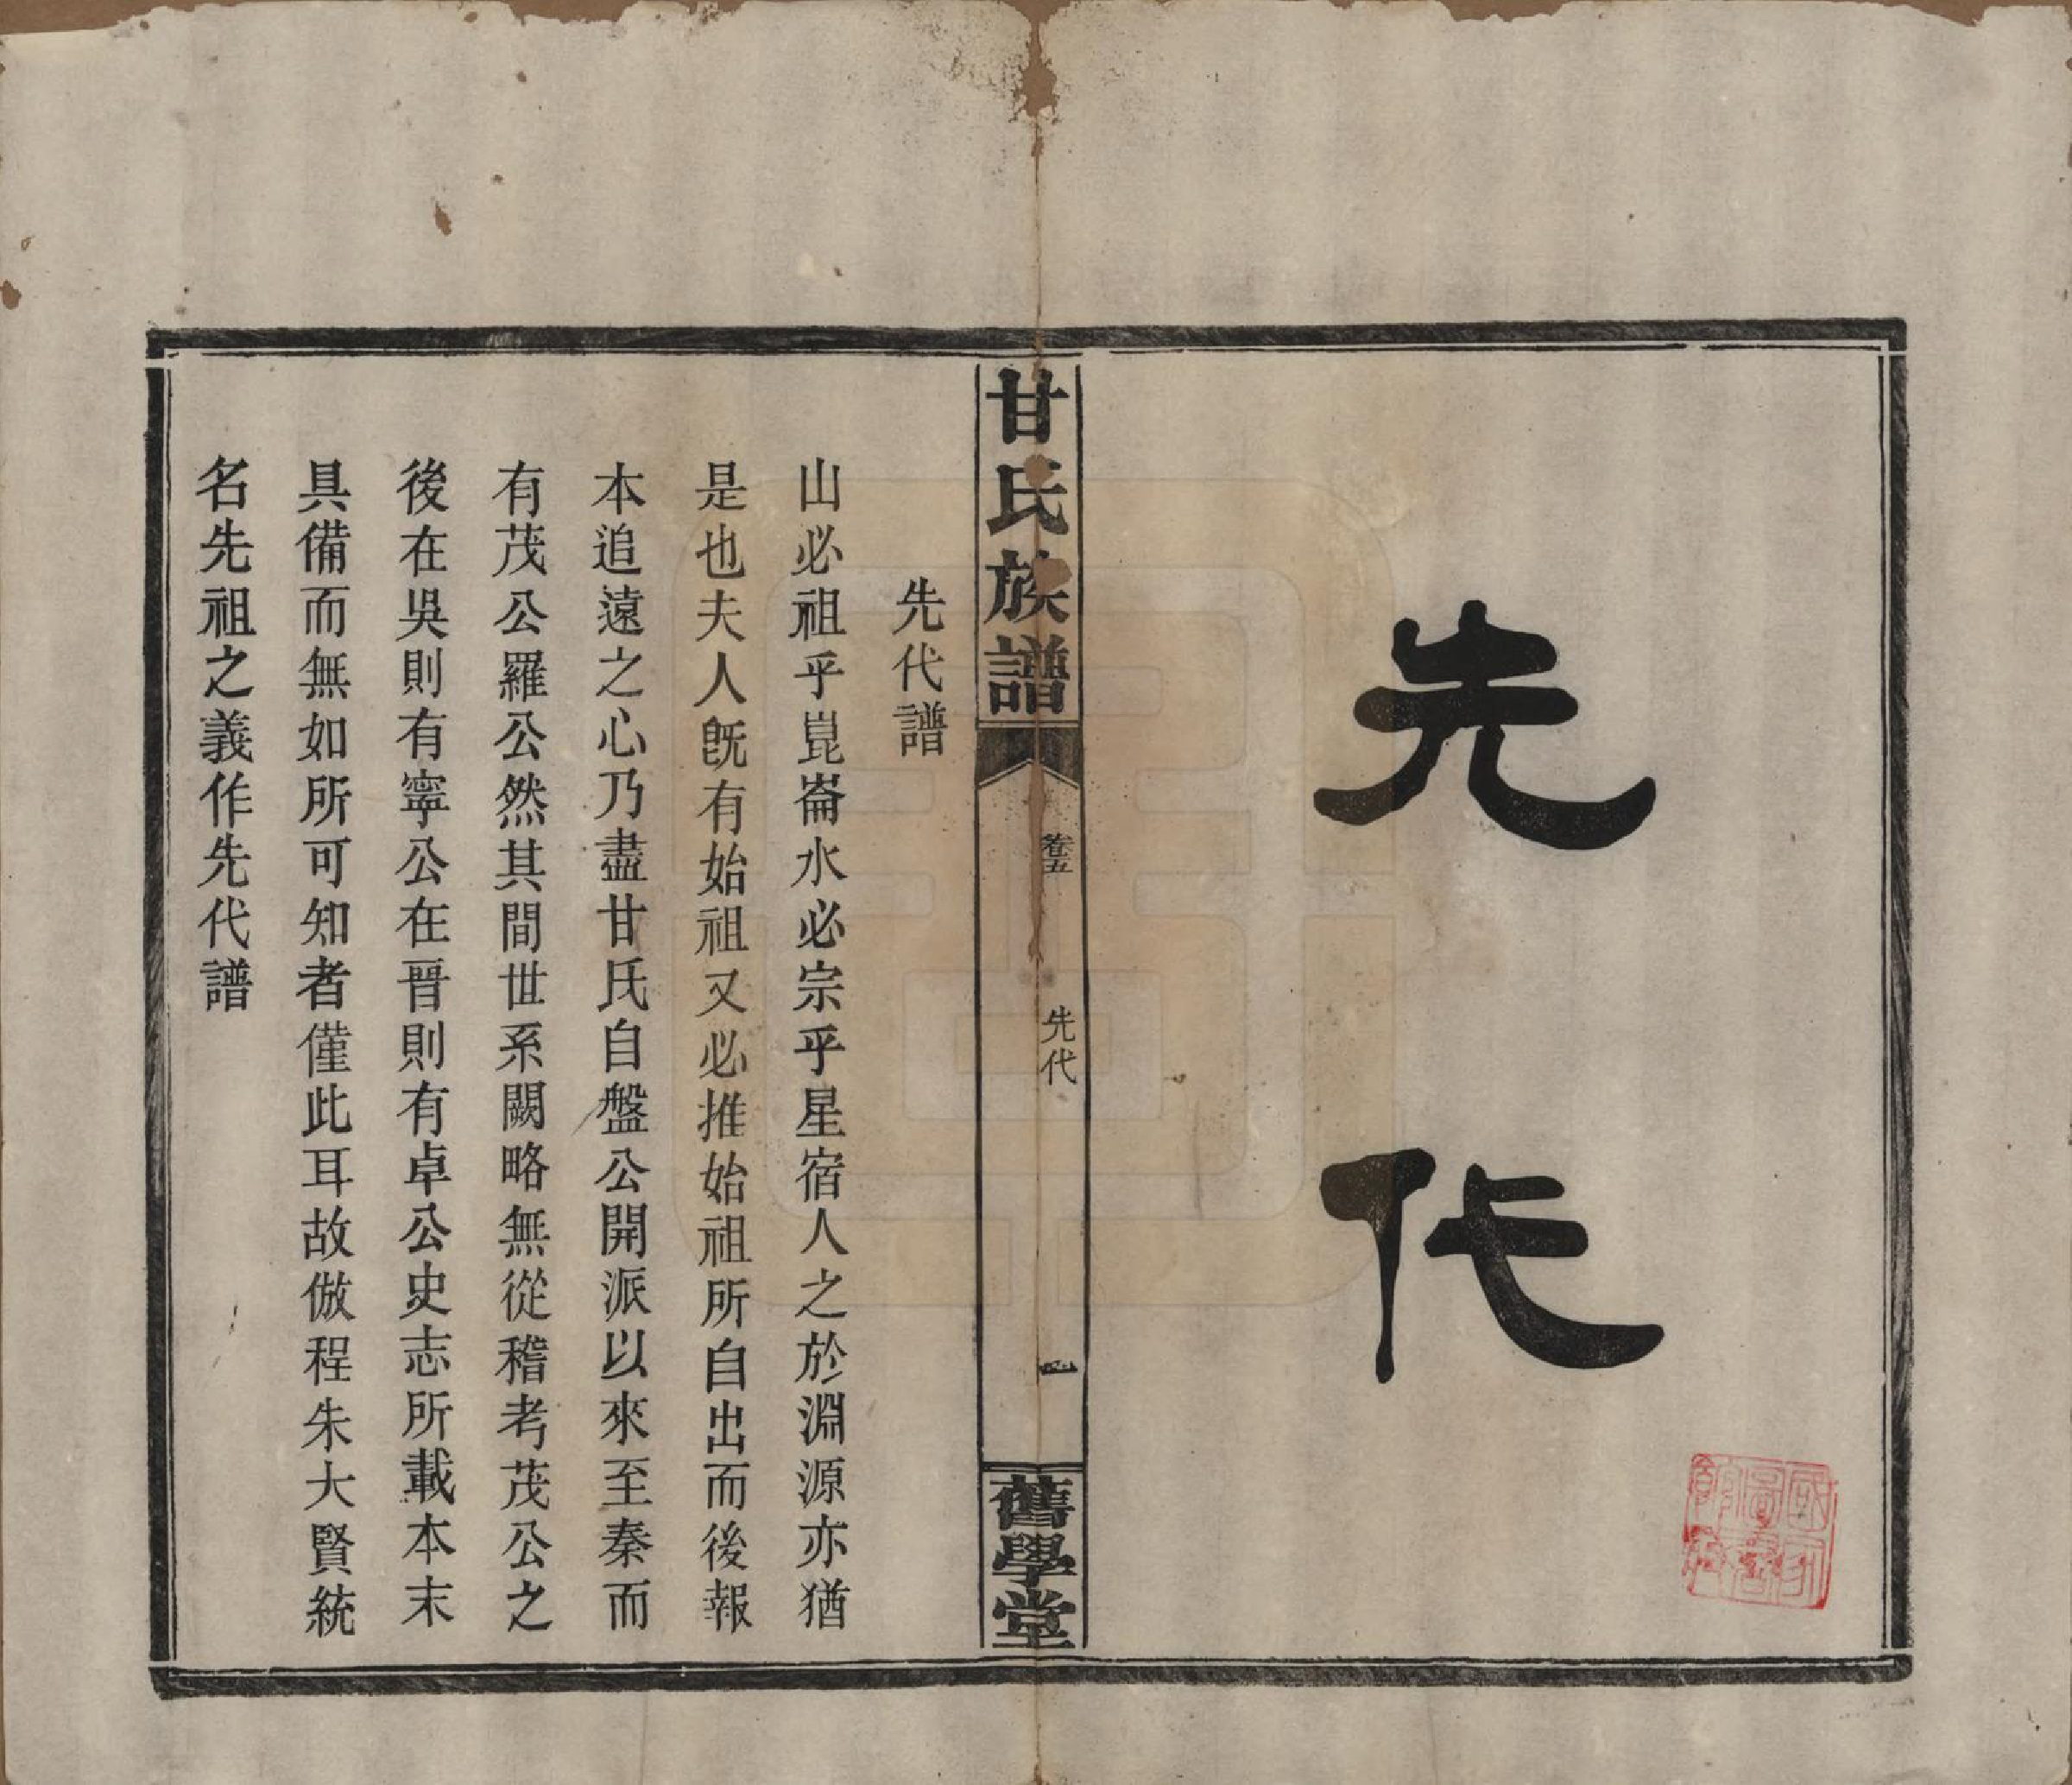 先代
國家圖書館藏
甘氏族譜
卷五
先代
一
舊學堂
先代譜
山必祖乎崑崙水必宗乎星宿人之於淵源亦猶
是也夫人旣有始祖又必推始祖所自出而後報
本追遠之心乃盡甘氏自盤公開派以來至秦而
有茂公羅公然其間世系闕略無從稽考茂公之
後在吳則有寧公在晉則有卓公史志所載本末
具備而無如所可知者僅此耳故倣程朱大賢統
名先祖之義作先代譜